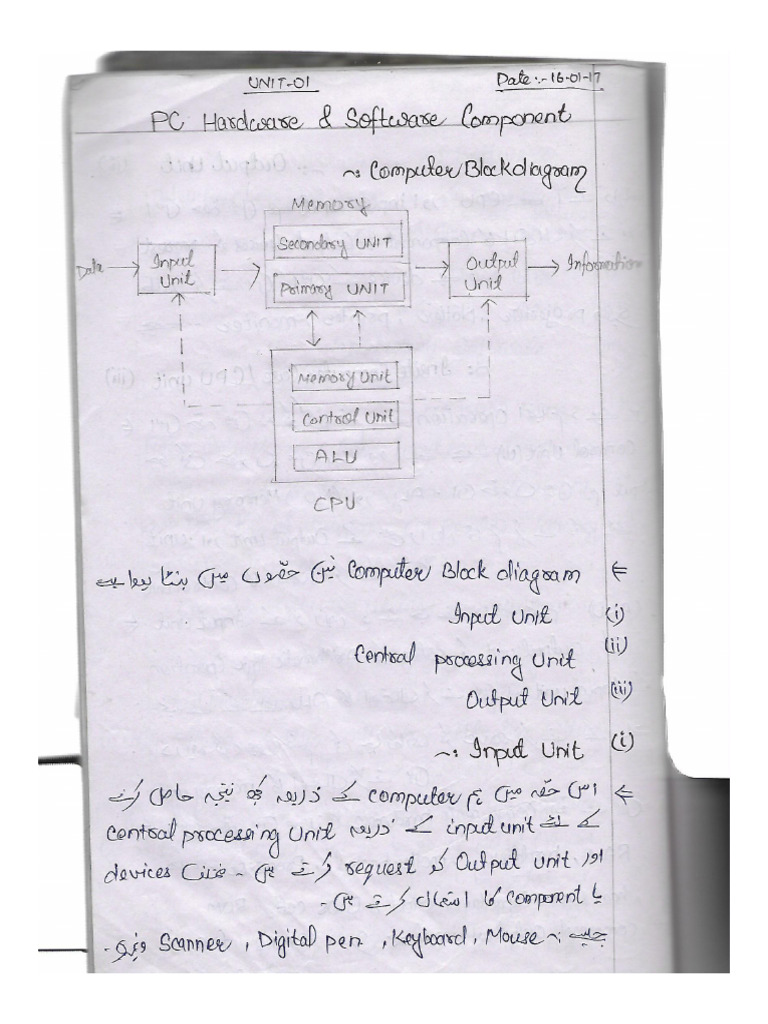 UNIT-01
Date:- 16-01-17
PC Hardware & Software Component
Computer Block diagram :~
Memory
Secondary UNIT
Primary UNIT
Data
Input Unit
Output Unit
Information
Memory Unit
Control Unit
ALU
CPU
⇐ Computer Block diagram تین حصّوں میں بنٹا ہوا ہے
(i) Input Unit
(ii) Central processing Unit
(iii) Output Unit
(i) Input Unit :~
⇐ اس حصّہ میں ہم computer کے ذریعہ کچھ نتیجہ حاصل کرنے
کے لئے input unit کے ذریعہ central processing Unit
اور Output unit کو request کرتے ہیں۔ مختلف devices
یا component کا استعمال کرتے ہیں۔
جیسے :~ Mouse, Keyboard, Digital pen, Scanner وغیرہ۔